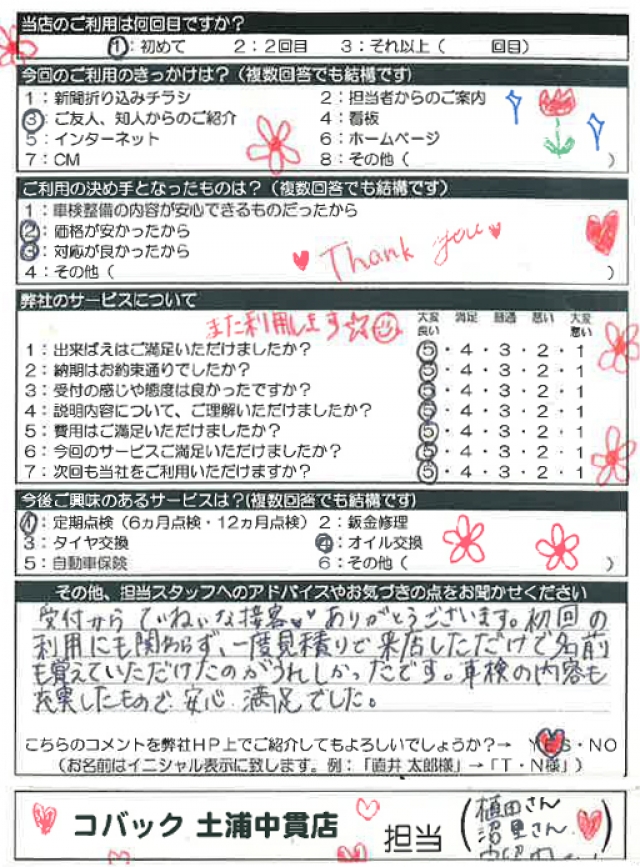 当店のご利用は何回目ですか?
1：初めて 2：2回目 3：それ以上（ 回目）
今回のご利用のきっかけは？（複数回答でも結構です）
1：新聞折り込みチラシ 2：担当者からのご案内
3：ご友人、知人からのご紹介 4：看板
5：インターネット 6：ホームページ
7：CM 8：その他（ ）
ご利用の決め手となったものは？（複数回答でも結構です）
1：車検整備の内容が安心できるものだったから
2：価格が安かったから
3：対応が良かったから
Thank you
4：その他（ ）
弊社のサービスについて
また利用します
大変良い 満足 普通 悪い 大変悪い
1：出来ばえはご満足いただけましたか？ 5・4・3・2・1
2：納期はお約束通りでしたか？ 5・4・3・2・1
3：受付の感じや態度は良かったですか？ 5・4・3・2・1
4：説明内容について、ご理解いただけましたか？ 5・4・3・2・1
5：費用はご満足いただけましたか？ 5・4・3・2・1
6：今回のサービスご満足いただけましたか？ 5・4・3・2・1
7：次回も当社をご利用いただけますか？ 5・4・3・2・1
今後ご興味のあるサービスは？(複数回答でも結構です)
1：定期点検（6ヵ月点検・12ヵ月点検）2：鈑金修理
3：タイヤ交換 4：オイル交換
5：自動車保険 6：その他（ ）
その他、担当スタッフへのアドバイスやお気づきの点をお聞かせください
受付から ていねいな接客♥♥ ありがとうございます。初回の
利用にも関わらず、一度見積りで来店しただけで名前
も覚えていただけたのがうれしかったです。車検の内容も
充実したもので 安心 満足でした。
こちらのコメントを弊社HP上でご紹介してもよろしいでしょうか？→ YES・NO
（お名前はイニシャル表示に致します。例：「直井 太郎様」→「T・N様」）
コバック 土浦中貫店 担当（植田さん
沼里さん